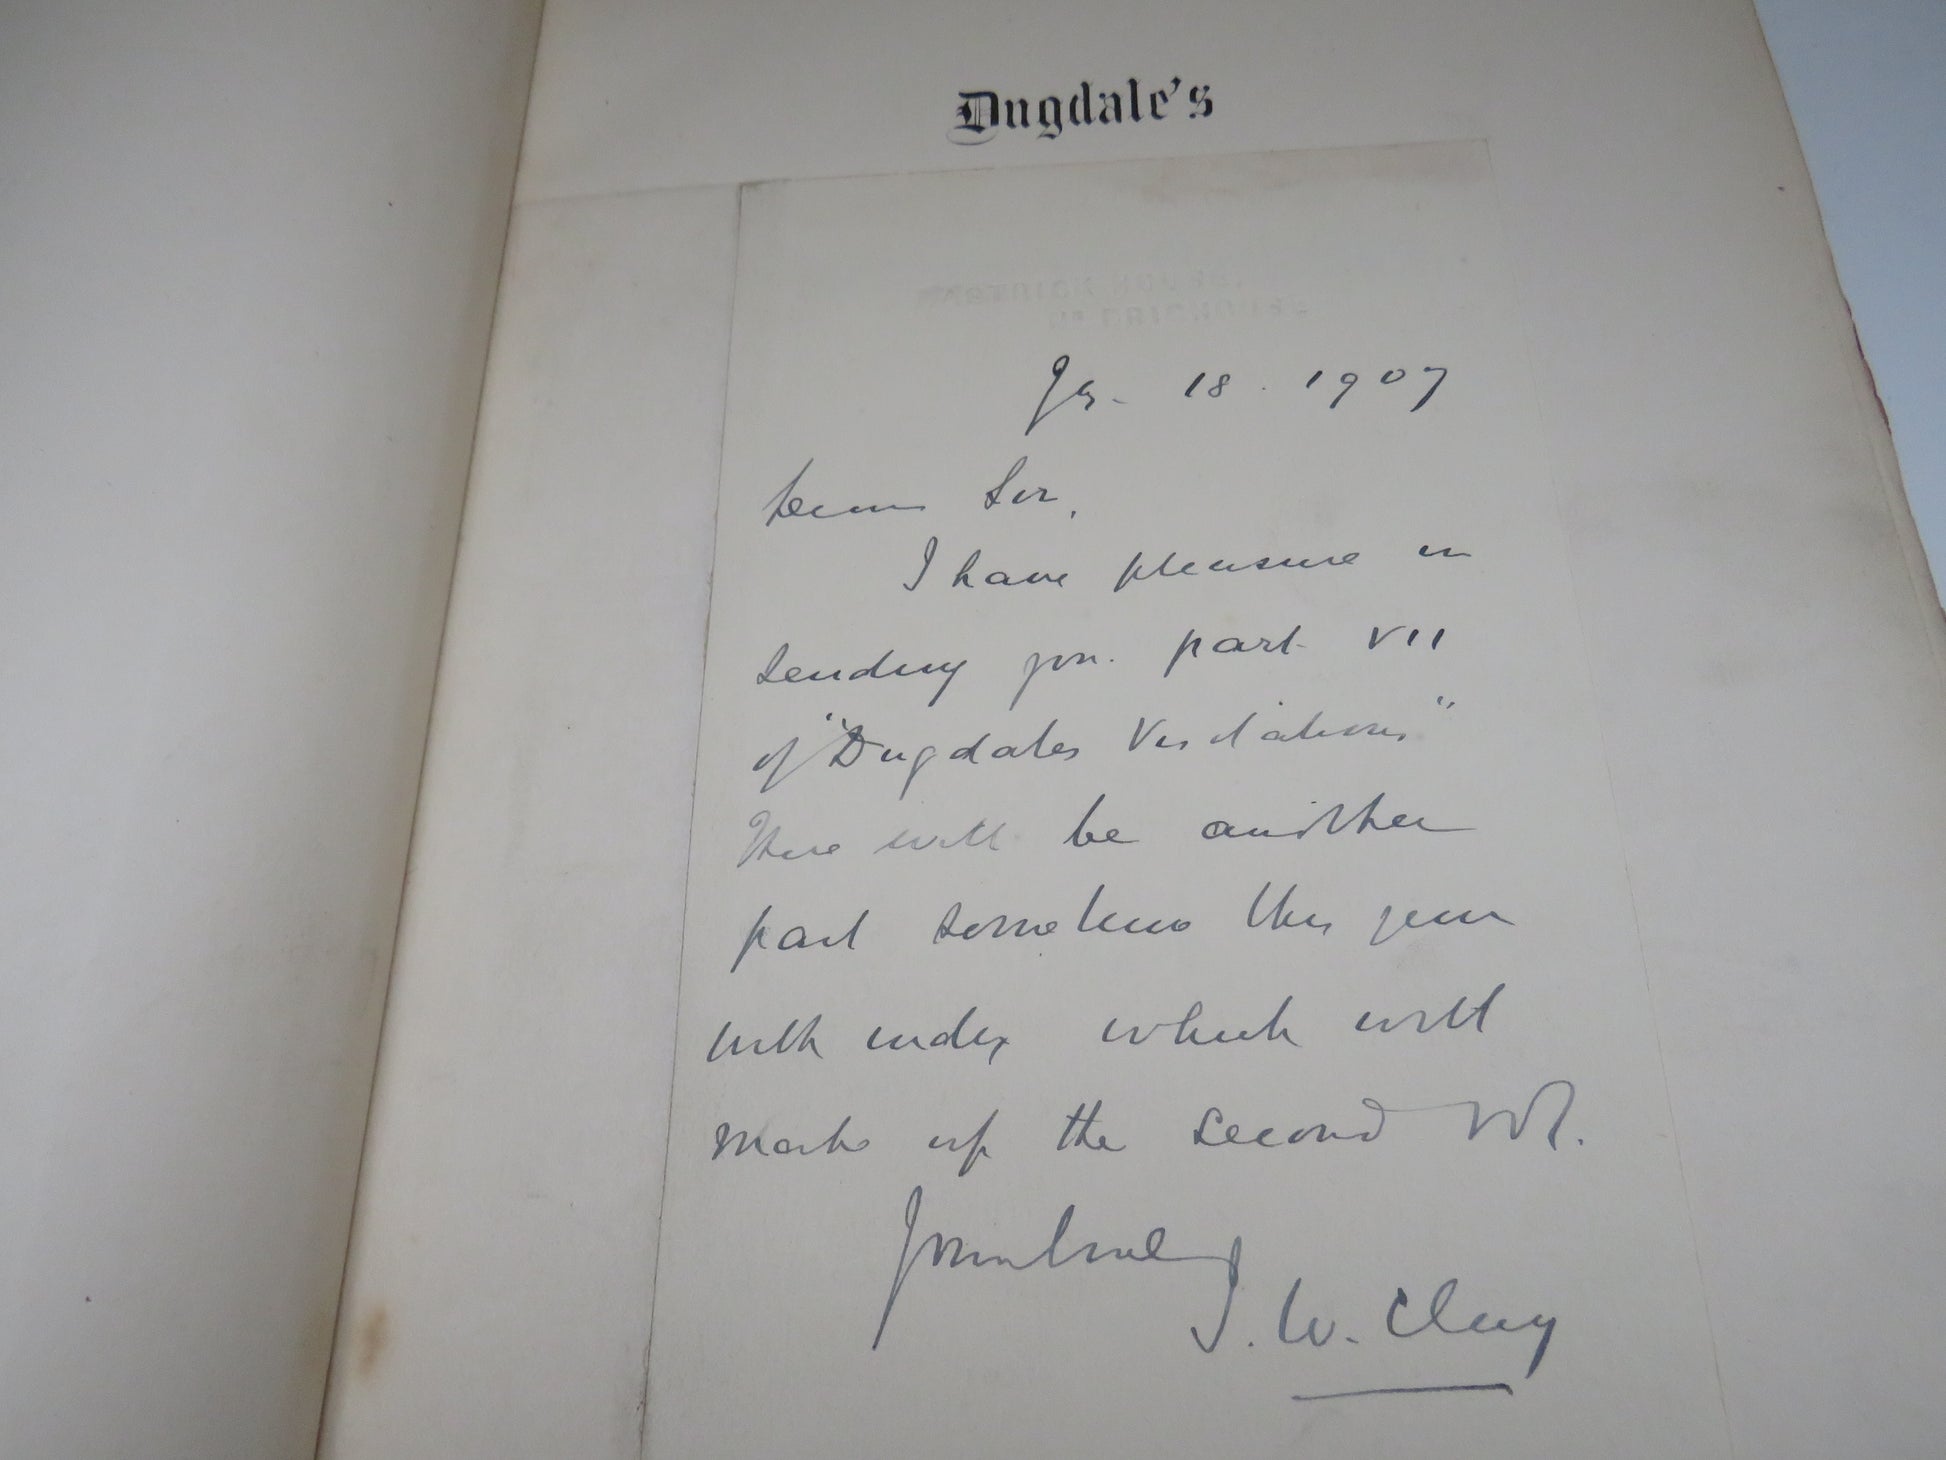 Dugdale's
RASTRICK HOUSE,
Nr BRIGHOUSE
18. 1907
Dear Sir,
I have pleasure in
sending you part VII
of "Dugdales Visitations"
There will be another
part sometime this year
with index which will
make up the second vol.
Yours truly
J. W. Clay